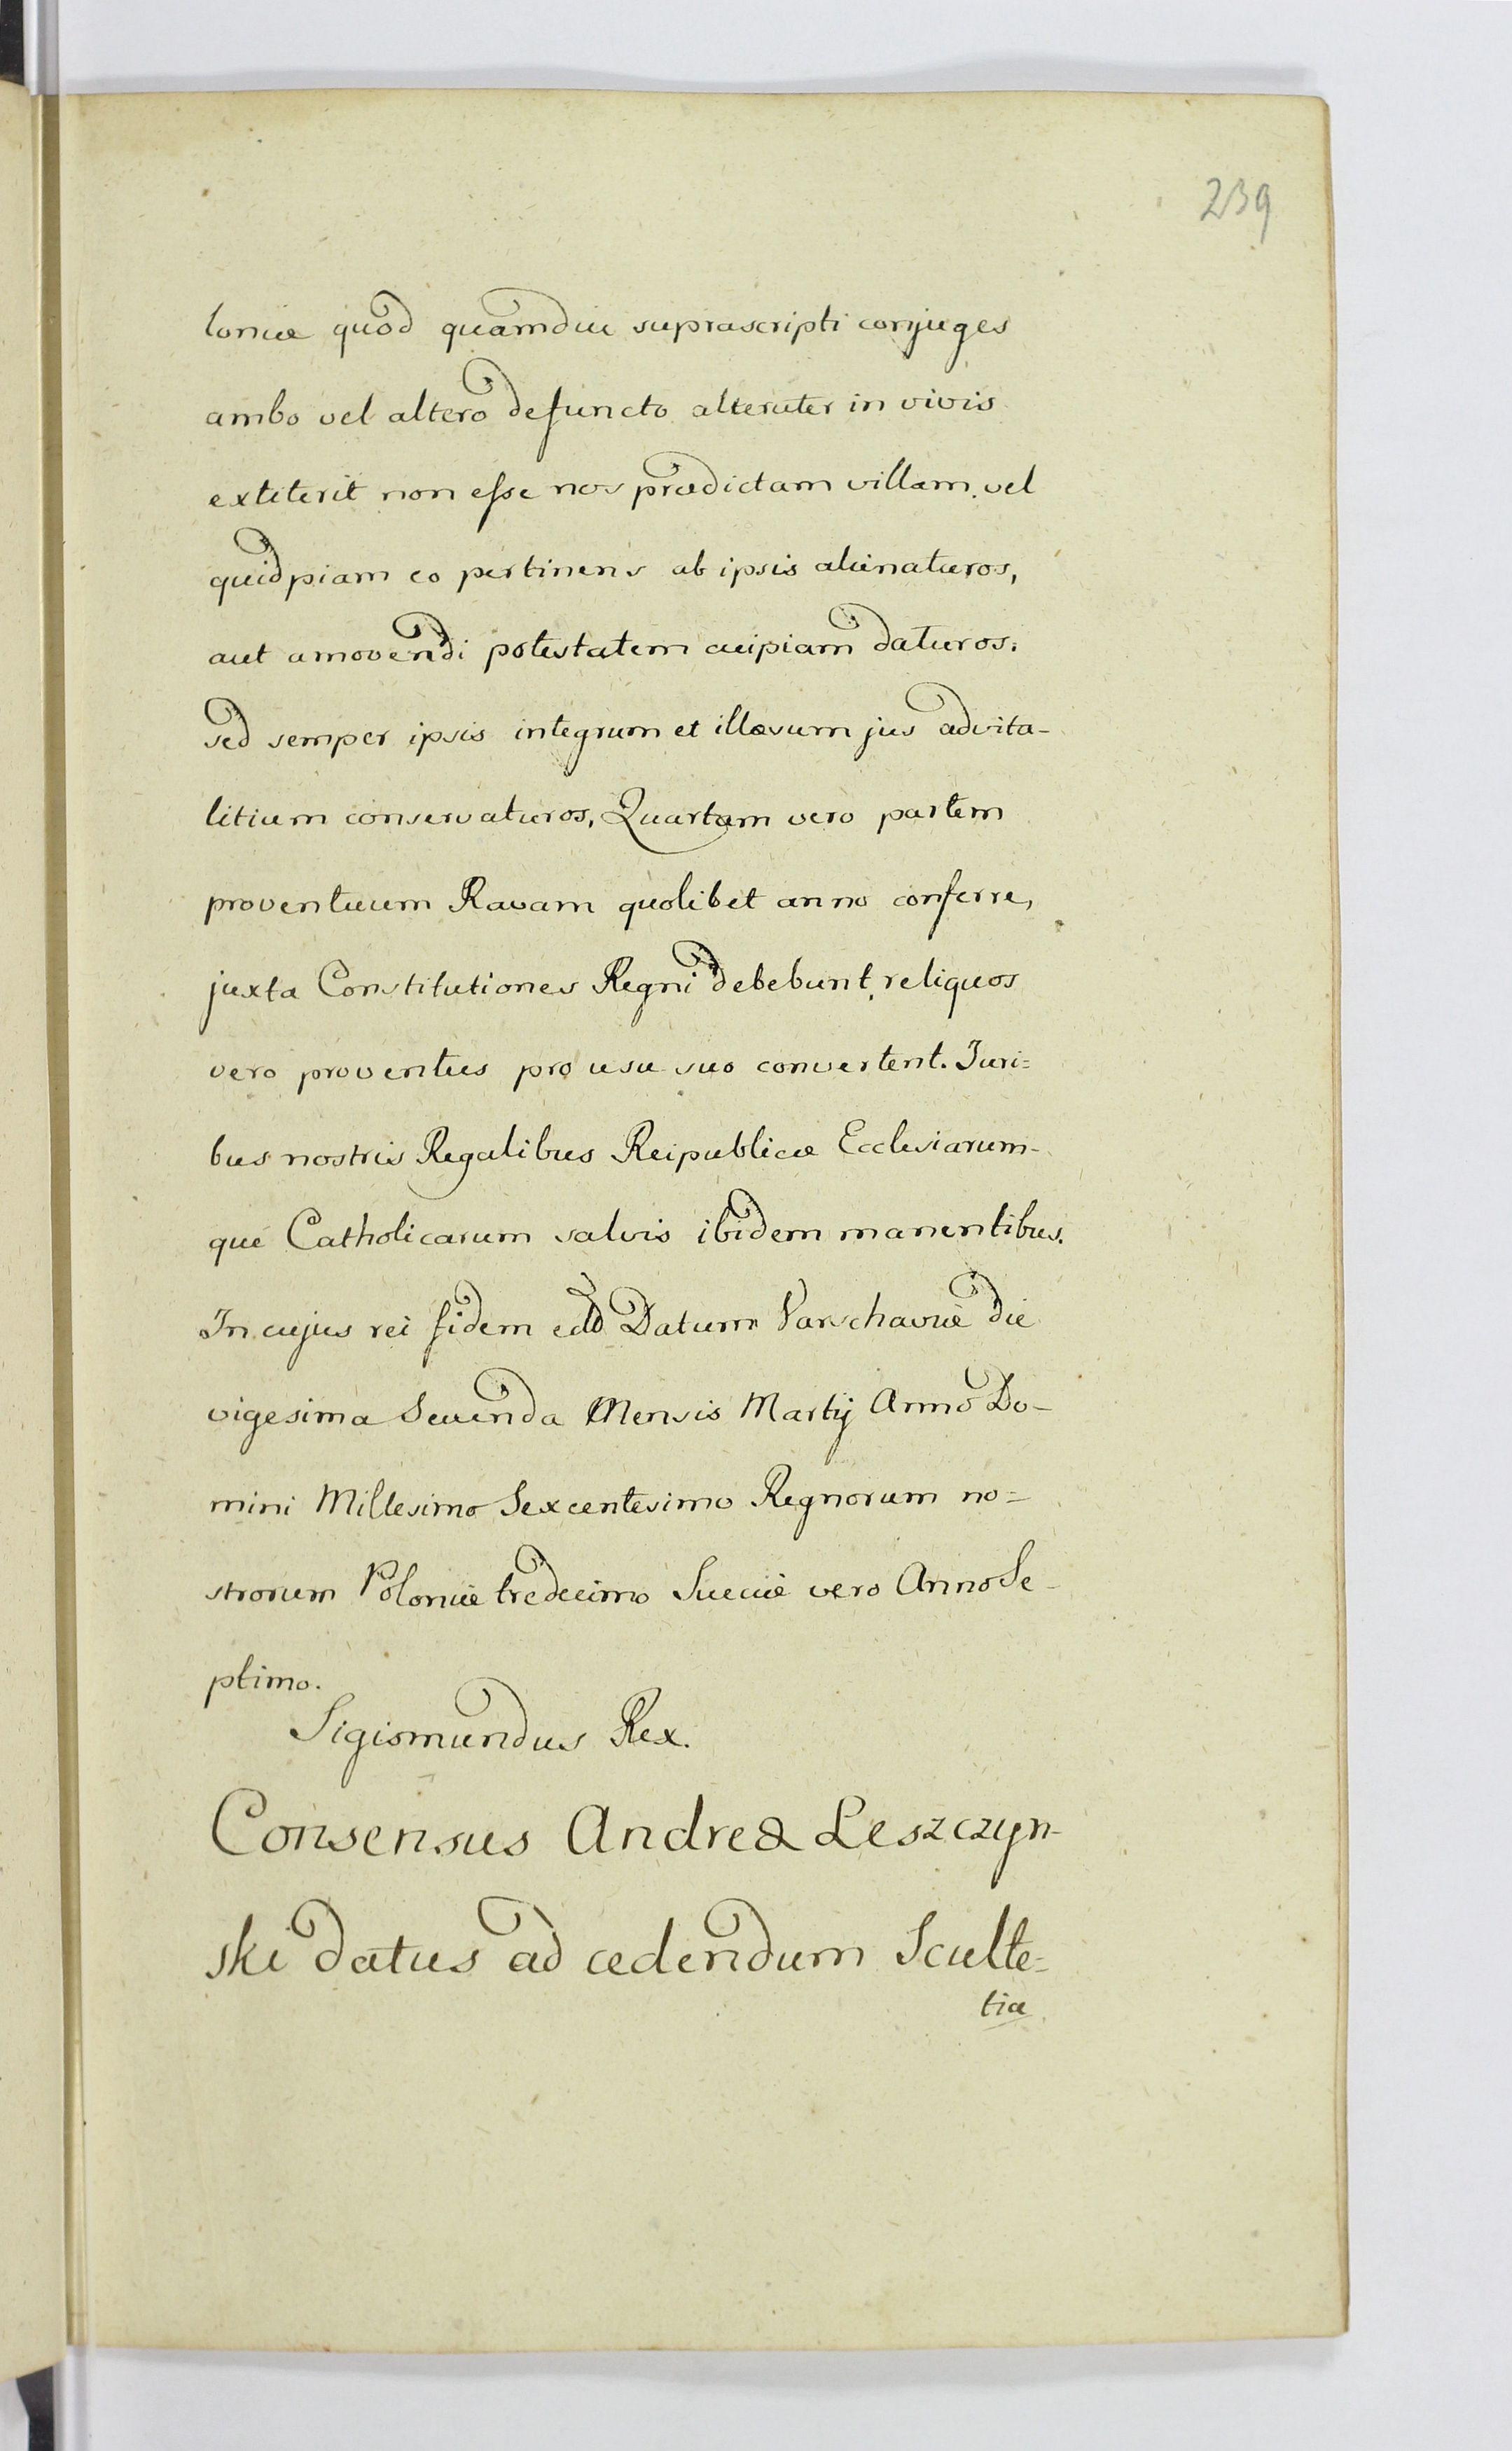 239
loniæ quod quamdiu suprascripti conjuges
ambo vel altero defuncto alteruter in vivis
extiterit non esse nos prædictam villam, vel
quidpiam eo pertinens ab ipsis alienaturos,
aut amovendi potestatem cuipiam daturos:
sed semper ipsis integrum et illæsum jus advita-
litium conservaturos, Quartam vero partem
proventuum Ravam quolibet anno conferre,
juxta Constitutiones Regni debebunt, reliquos
vero proventus pro usu suo convertent. Juri=
bus nostris Regalibus Reipublicæ Ecclesiarum-
que Catholicarum salvis ibidem manentibus.
In cujus rei fidem Datum Varschaviæ die
vigesima Secunda Mensis Martij Anno Do-
mini Millesimo Sexcentesimo Regnorum no=
strorum Poloniæ tredecimo Sueciæ vero Anno Se-
ptimo.
Sigismundus Rex.
Consensus Andreæ Leszczyn-
ski datus ad cedendum Sculte=
tiæ